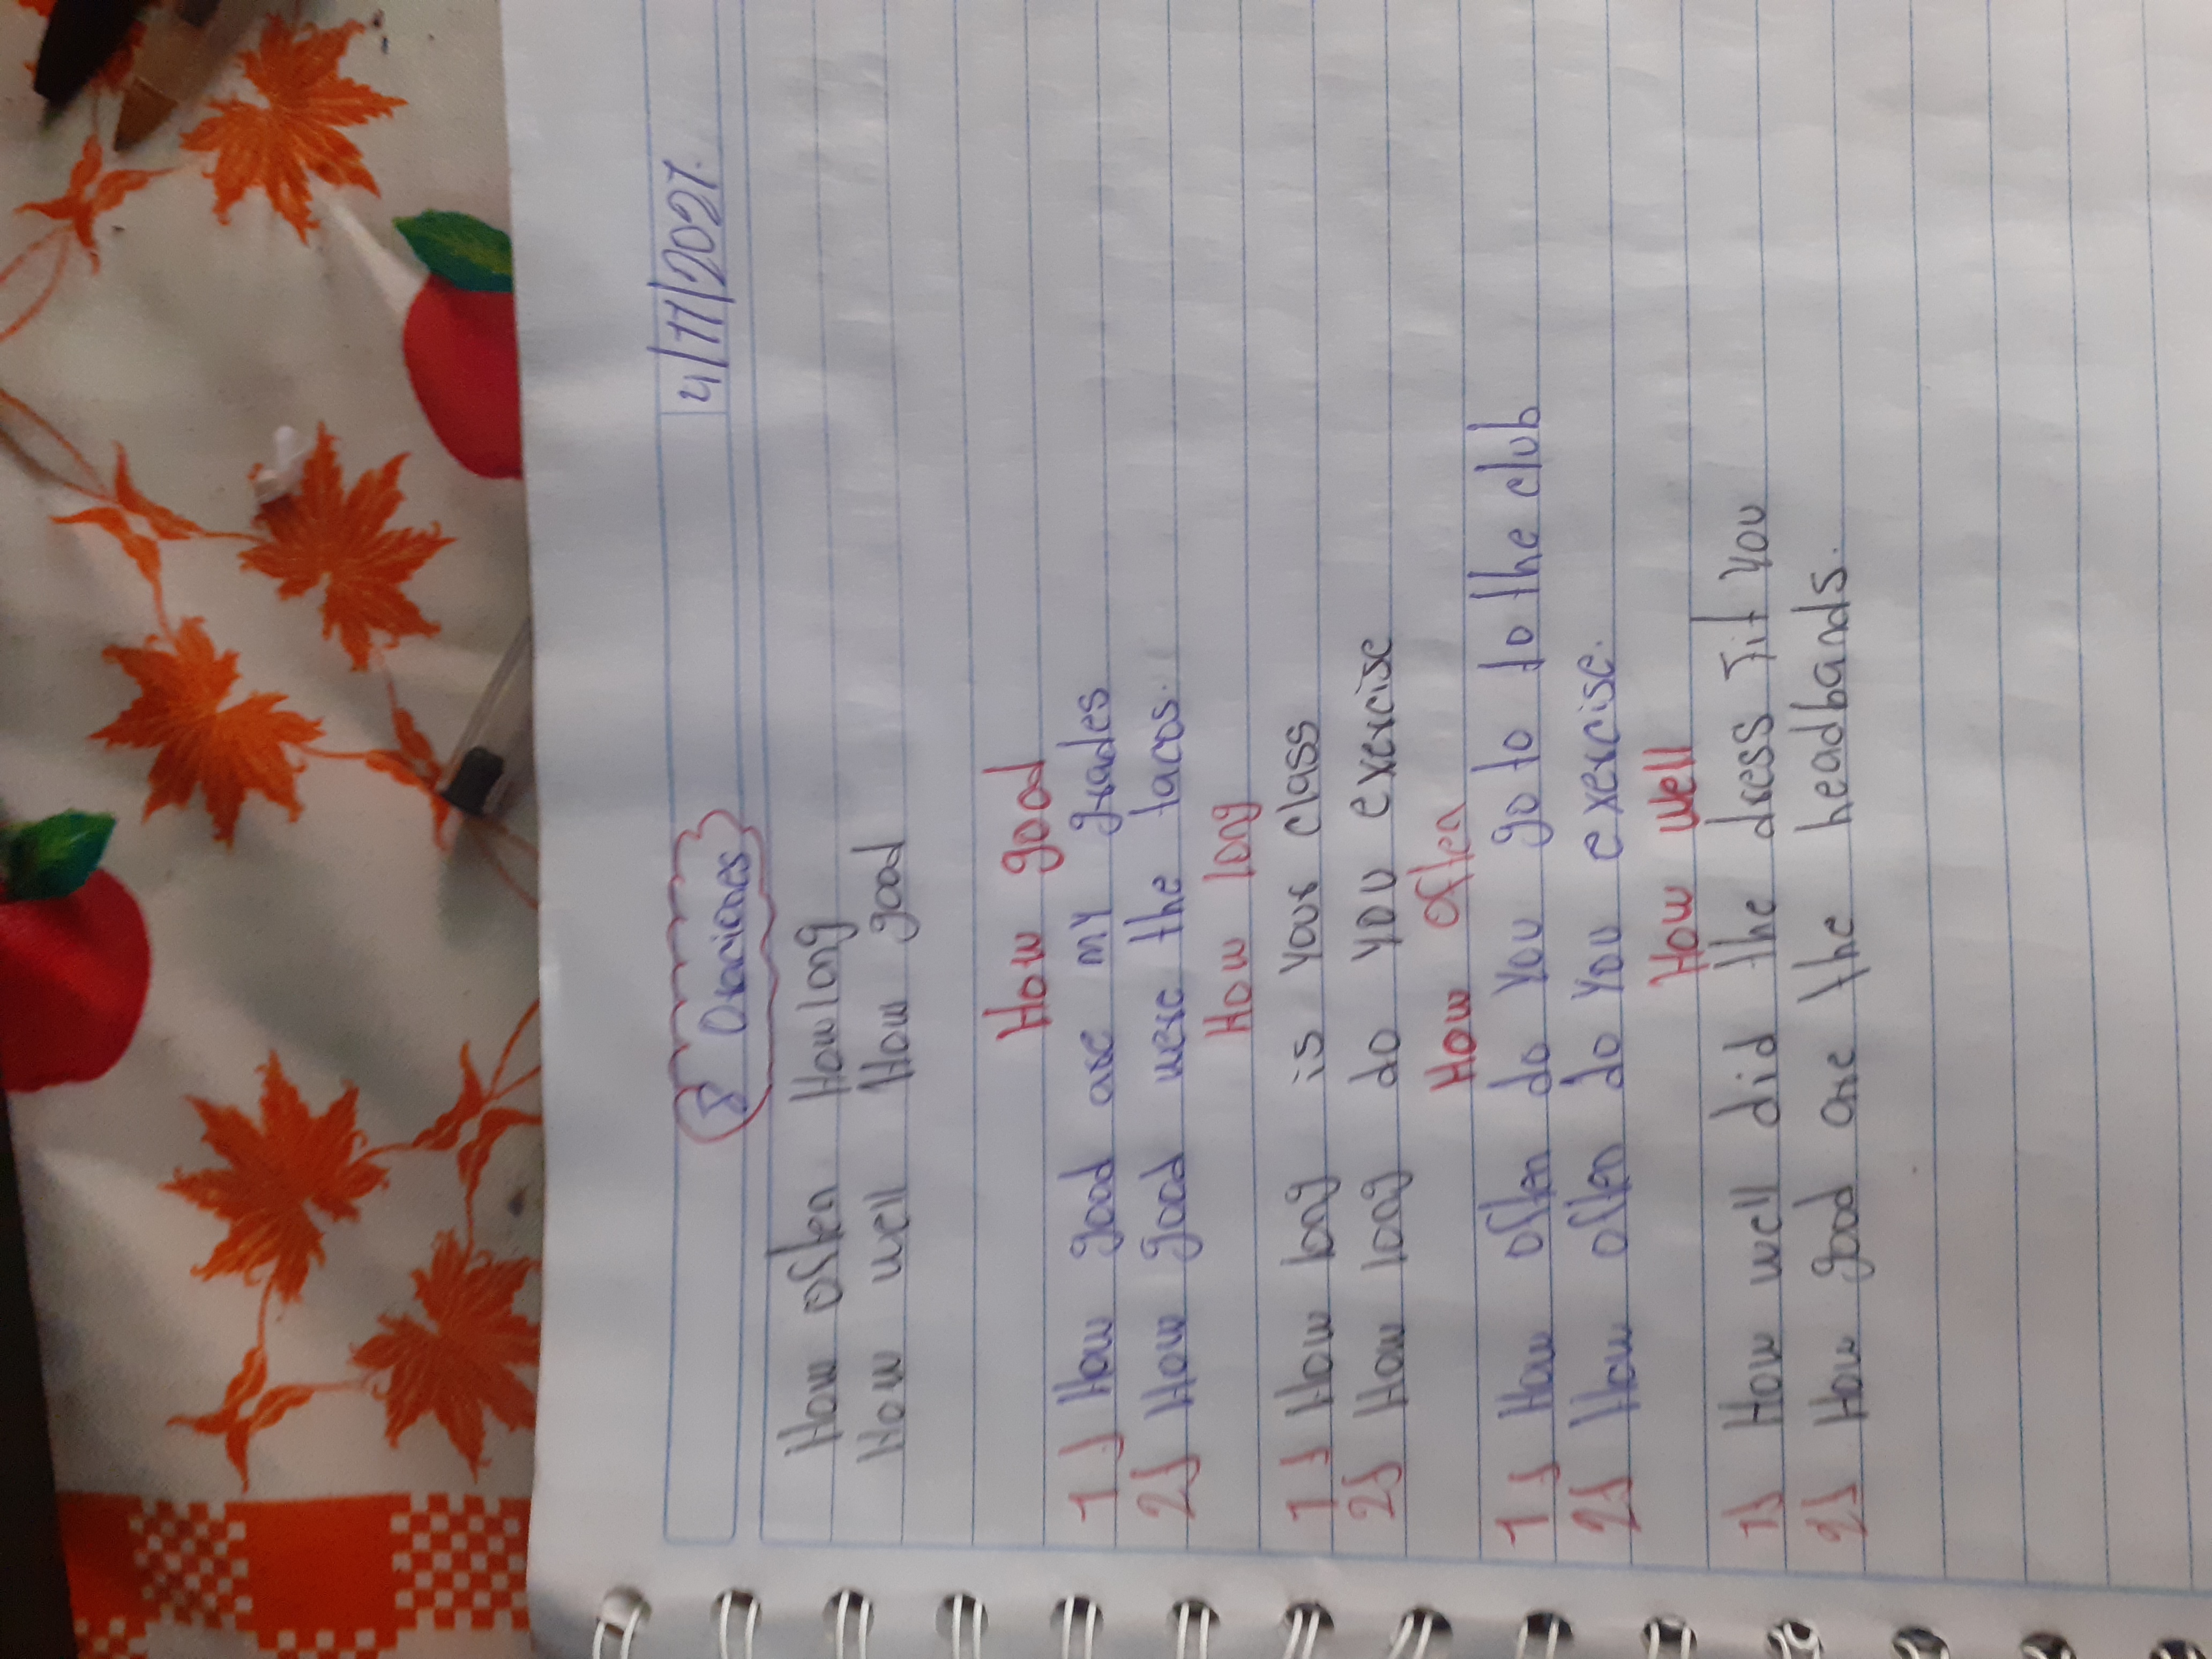 8 Oraciones
4/11/2021.
How often How long
How well How good
How good
1) How good are my grades
2) How good were the tacos.
How long
1) How long is your class
2) How long do you exercise
How often
1) How often do you go to to the club
2) How often do you exercise.
How well
1) How well did the dress fit you
2) How good are the headbands.